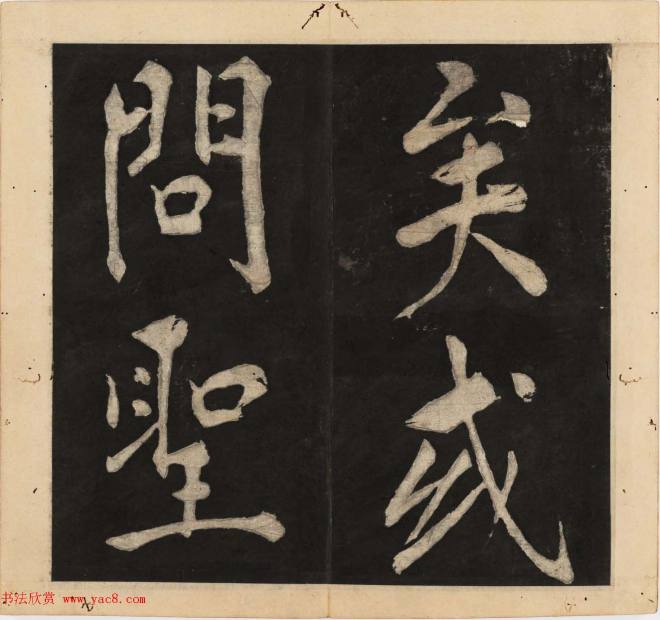 矣或
問聖
书法欣赏 www.yac8.com